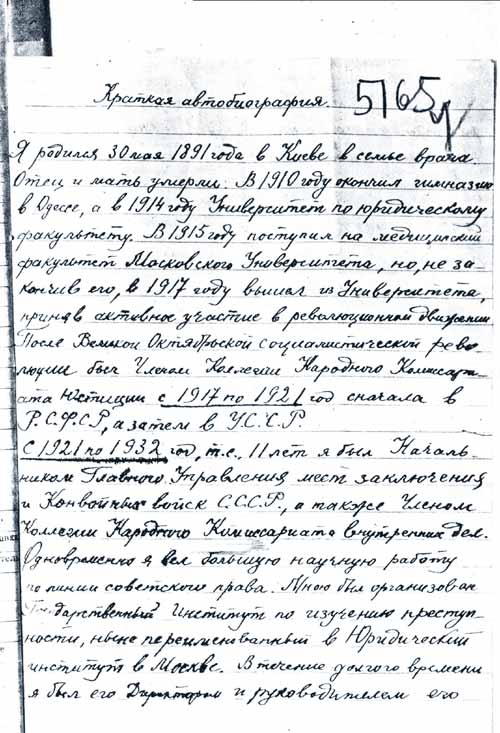 Краткая автобиография.
5765
Я родился 30 мая 1891 года в Киеве в семье врача.
Отец и мать умерли. В 1910 году окончил гимназию
в Одессе, а в 1914 году Университет по юридическому
факультету. В 1915 году поступил на медицинский
факультет Московского Университета, но, не за-
кончив его, в 1917 году вышел из Университета,
приняв активное участие в революционном движении.
После Великой Октябрьской социалистической рево-
люции был Членом Коллегии Народного Комиссари-
ата Юстиции с 1917 по 1921 год сначала в
Р.С.Ф.С.Р., а затем в У.С.С.Р.
С 1921 по 1932 год, т.е. 11 лет я был Началь-
ником Главного Управления мест заключения
и Конвойных войск С.С.С.Р., а также Членом
Коллегии Народного Комиссариата внутренних дел.
Одновременно я вел большую научную работу
по линии советского права. Мною был организован
Государственный Институт по изучению преступ-
ности, ныне переименованный в Юридический
институт в Москве. В течение долгого времени
я был его Директором и руководителем его